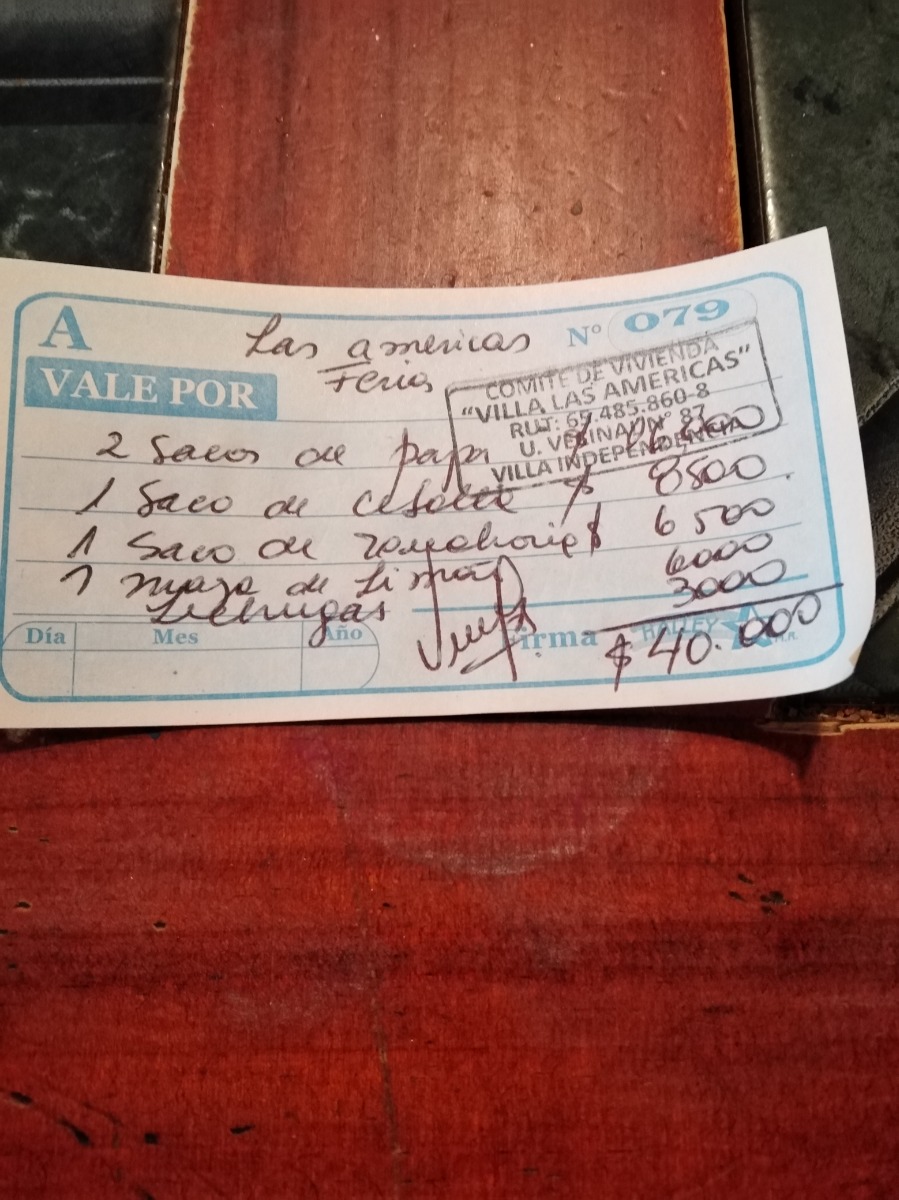 A
Las americas
Nº 079
VALE POR
Feria
COMITE DE VIVIENDA
"VILLA LAS AMERICAS"
RUT: 65.485.860-8
U. VECINAL Nº 87
VILLA INDEPENDENCIA
2 Sacos de papa $
1 Saco de cebolla $ 8500
1 Saco de zanahoria $ 6500
1 maja de Limon 6000
Lechugas 3000
Día Mes Año Firma HALLEY
$ 40.000